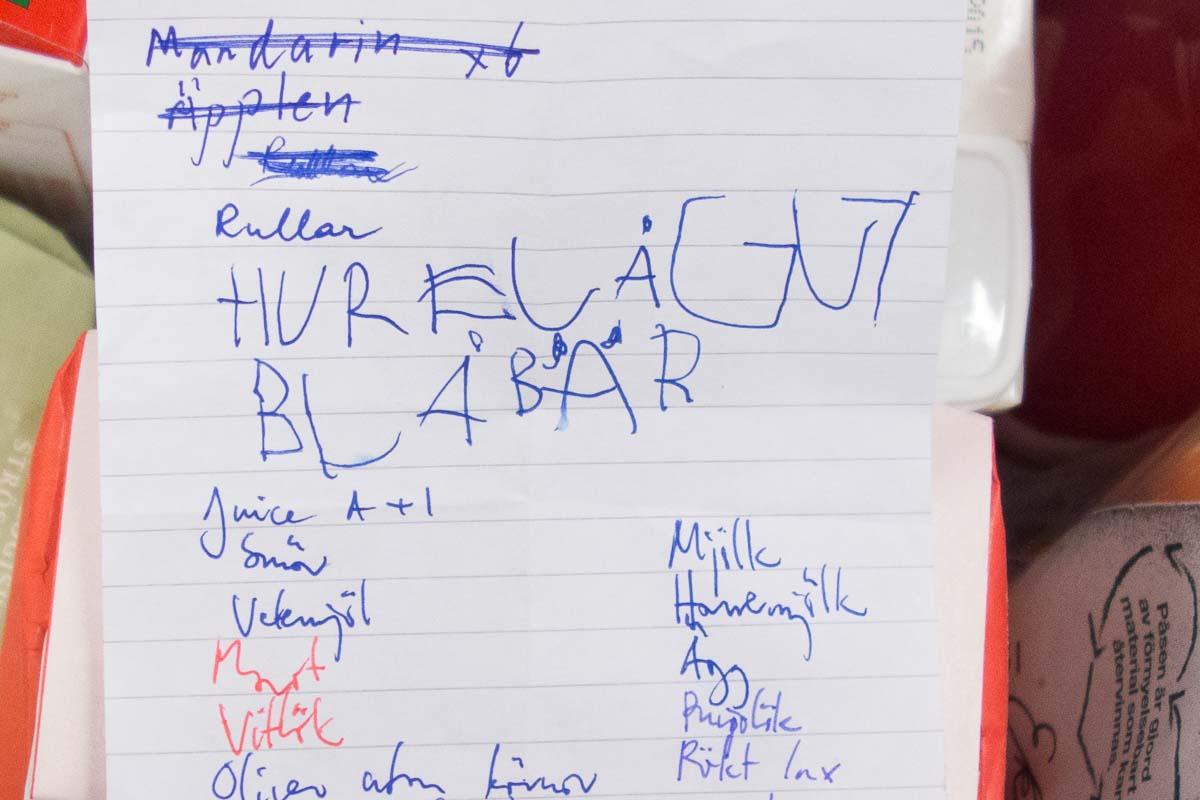 Mandarin x6
Äpplen
Rullar
HUR ELÅGUT
BLÅBÄR
Juice A+1
Smör
Vetemjöl
Vitlök
Oliver utan kärnor
Mjölk
Havremjölk
Ägg
Purjolök
Rökt lax
Påsen är gjord
av förnyelsebart
material som kan
återvinnas.